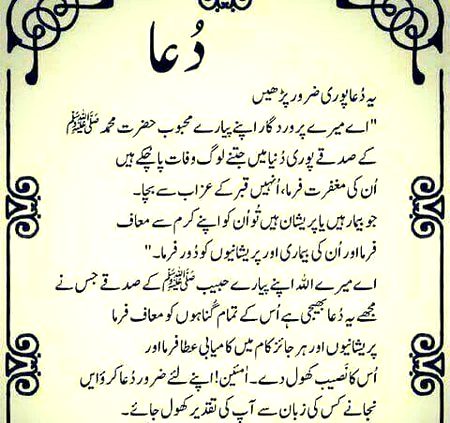 دُعا
یہ دُعا پوری ضرور پڑھیں
"اے میرے پروردگار اپنے پیارے محبوب حضرت محمد ﷺ
کے صدقے پوری دُنیا میں جتنے لوگ وفات پا چُکے ہیں
اُن کی مغفرت فرما، اُنہیں قبر کے عزاب سے بچا۔
جو بیمار ہیں یا پریشان ہیں تُو اُن کو اپنے کرم سے معاف
فرما اور اُن کی بیماری اور پریشانیوں کو دُور فرما۔"
اے میرے اللہ اپنے پیارے حبیب ﷺ کے صدقے جس نے
مجھے یہ دُعا بھیجی ہے اُس کے تمام گناہوں کو معاف فرما
پریشانیوں اور ہر جائز کام میں کامیابی عطا فرما اور
اُس کا نصیب کھول دے۔ اٰمئین! اپنے لئے ضرور دُعا کرؤایں
نجانے کس کی زبان سے آپ کی تقدیر کھول جائے۔